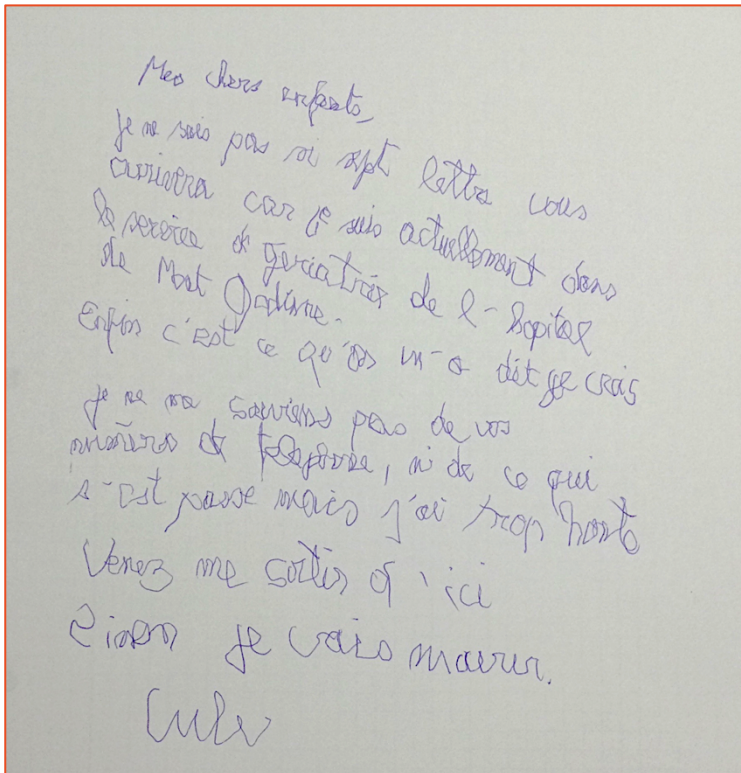 Mes chers enfants,
Je ne sais pas si sept lettra vous
arrivera car je suis actuellement dans
le service de geriatrie de l-hopital
de Mont Godinne.
Enfin c'est ce qu'on m-a dit je crois
Je ne me souviens pas de vos
numéros de telephone, ni de ce qui
s-est passe mais j'ai trop honte
Venez me sortir d'ici
je vais mourir.